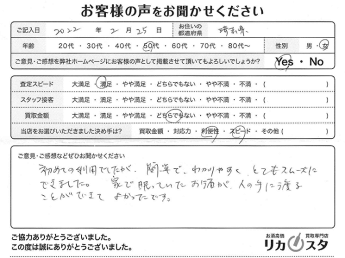 お客様の声をお聞かせください
ご記入日 2022年 2月 25日 お住いの都道府県 埼玉県
年齢 20代・30代・40代・50代・60代・70代・80代〜 性別 男・女
ご意見・ご感想を弊社ホームページにお客様の声として掲載させて頂いてもよろしいでしょうか? Yes・No
査定スピード 大満足・満足・やや満足・どちらでもない・やや不満・不満・
スタッフ接客 大満足・満足・やや満足・どちらでもない・やや不満・不満・
買取金額 大満足・満足・やや満足・どちらでもない・やや不満・不満・
当店をお選びいただきました決め手は? 買取金額・対応力・利便性・スピード・その他( )
ご意見・ご感想などぜひお聞かせください
初めての利用でしたが、簡単で、わかりやすく とてもスムーズに
できました。家で眠っていたお酒が、人の手に渡る
ことができて よかったです。
ご協力ありがとうございました。
この度は誠にありがとうございました。
お酒高価買取専門店
リカスタ